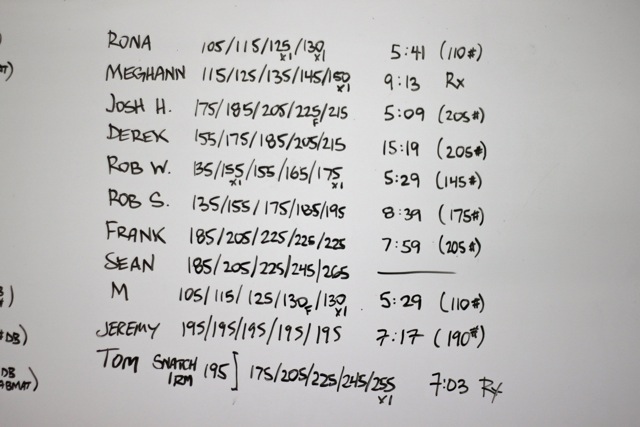 RONA 105/115/125/130 5:41 (110#)
x1 x1
MEGHANN 115/125/135/145/150 9:13 Rx
x1
JOSH H. 175/185/205/225/215 5:09 (205#)
F
DEREK 155/175/185/205/215 15:19 (205#)
ROB W. 135/155/155/165/175 5:29 (145#)
x1 x1
ROB S. 135/155/175/185/195 8:39 (175#)
FRANK 185/205/225/225/225 7:59 (205#)
SEAN 185/205/225/245/265
M 105/115/125/130/130 5:29 (110#)
F x1
JEREMY 195/195/195/195/195 7:17 (190#)
#DB)
TOM SNATCH 1RM 195] 175/205/225/245/255 7:03 Rx
x1
DB
ABMAT)